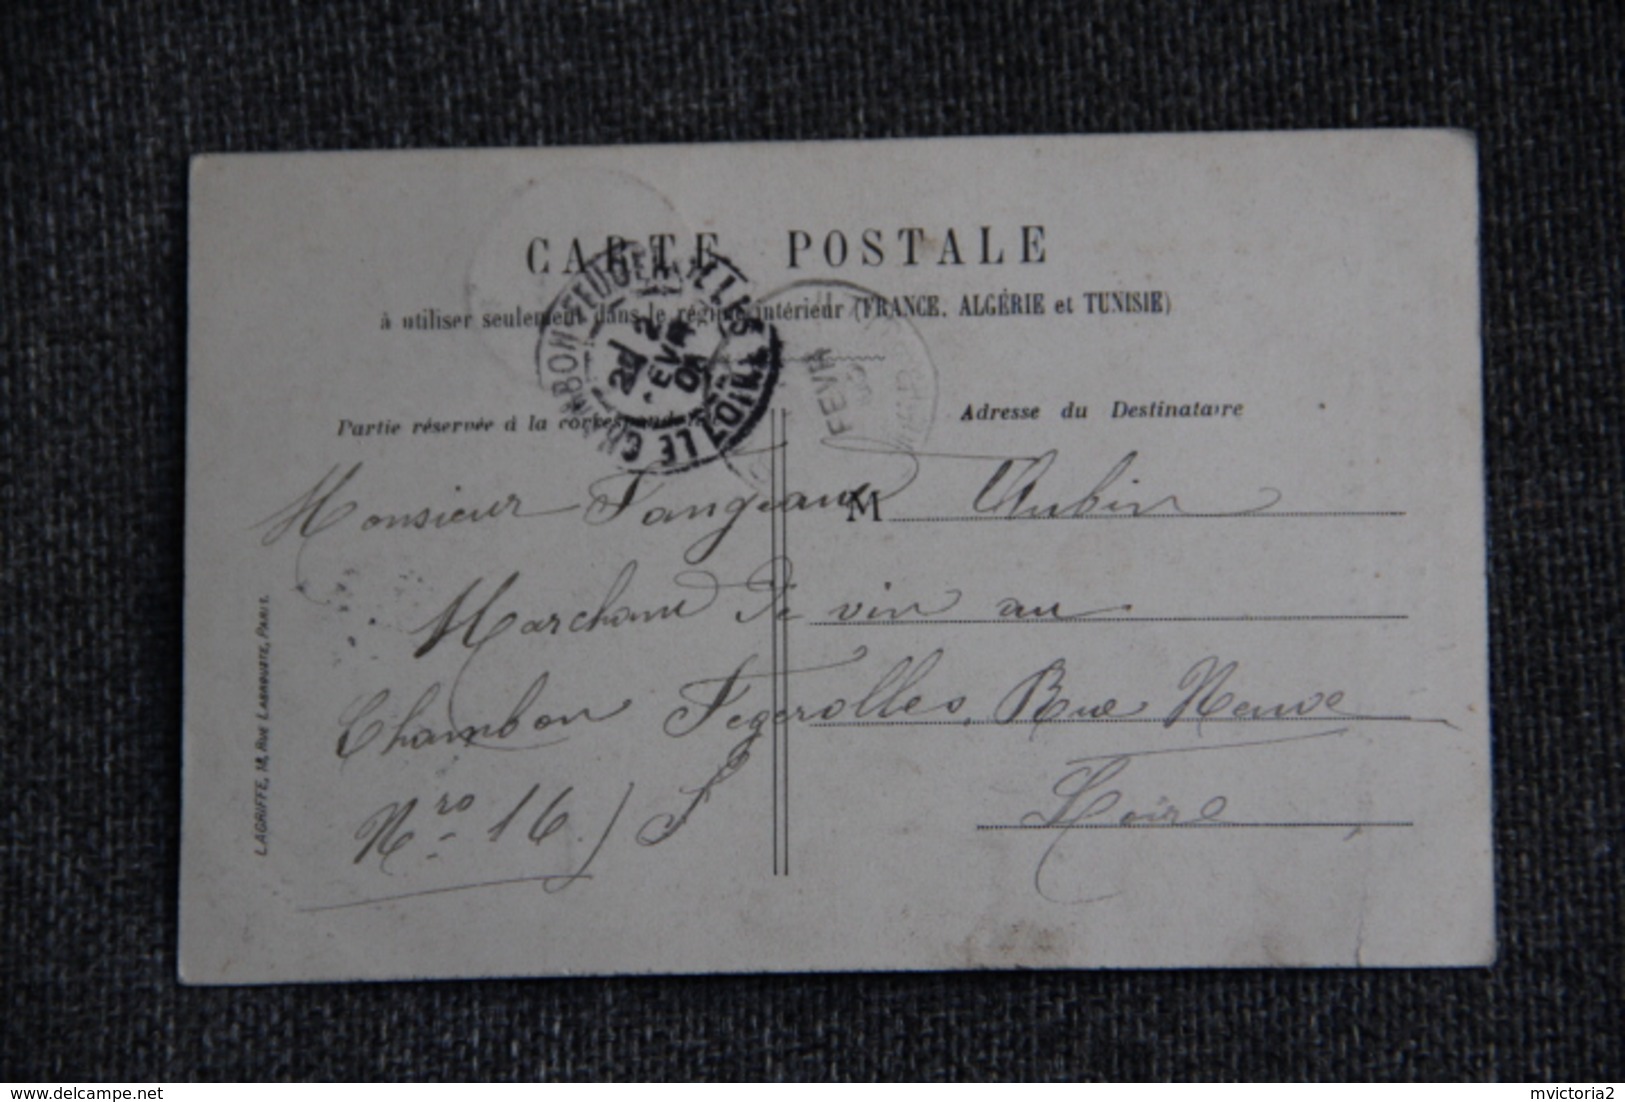 CARTE POSTALE
à utiliser seulement dans le régime intérieur (FRANCE, ALGÉRIE et TUNISIE)
CHAMBON-FEUGEROLLES
LOIRE
2
FEVR
FEVR
Partie réservée à la correspondance
Adresse du Destinataire
Monsieur Fangeaux M Aubin
Marchand De vin au
Chambon Fegerolles, Rue Neuve
Nro 16 Loire
LAGRIFFE, 14, RUE LABROUSTE, PARIS.
delcampe.net
mvictoria2